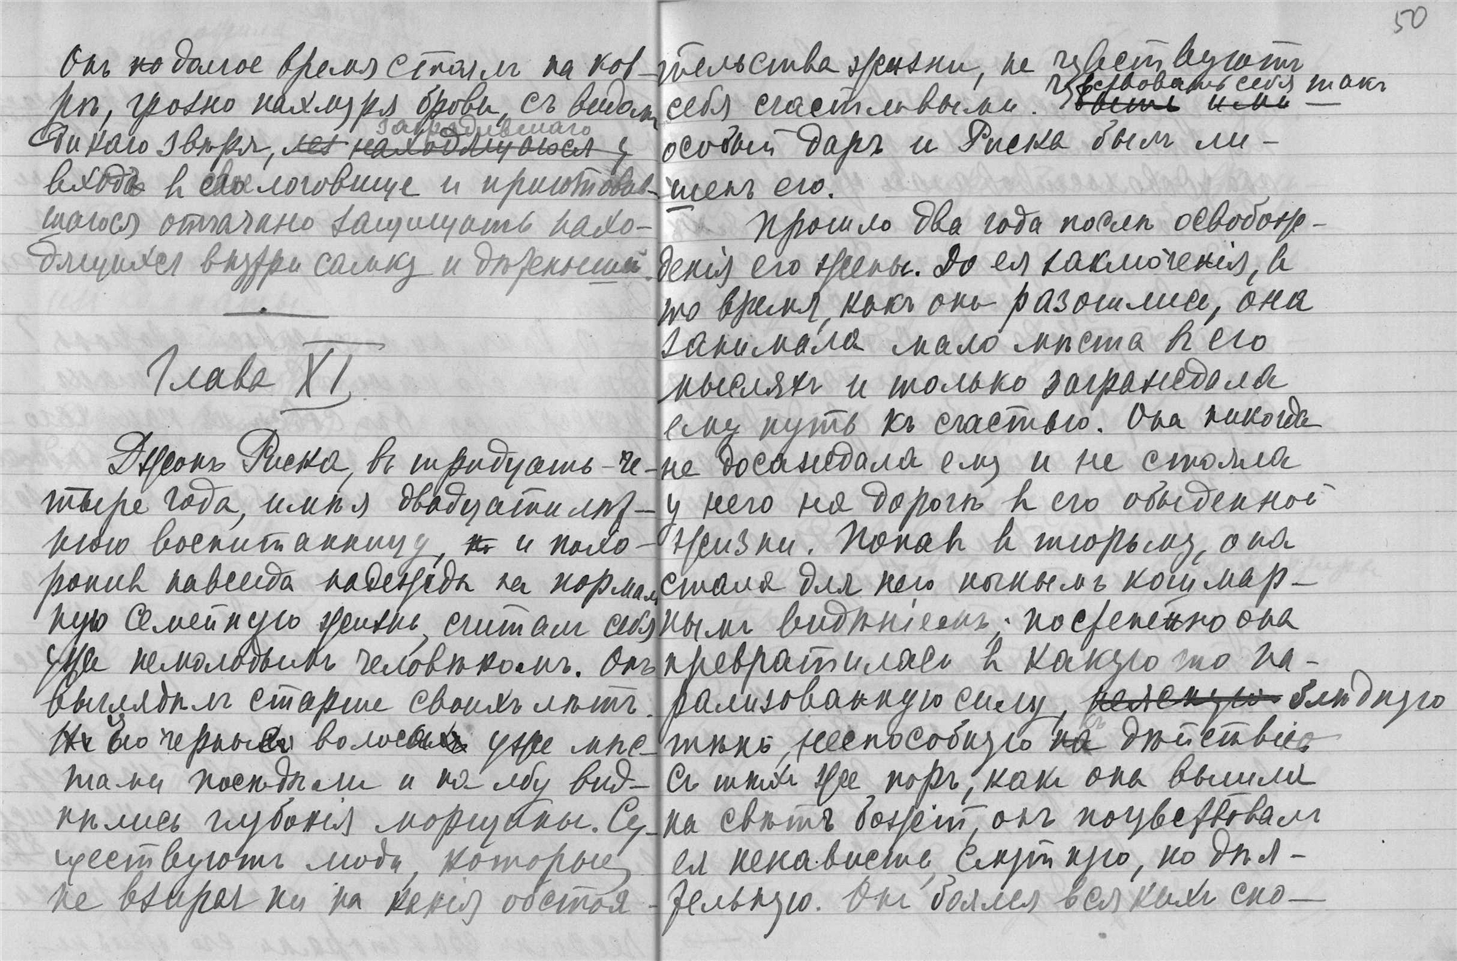 Онъ долгое время стоялъ на ков-
рѣ, грозно нахмуря брови, съ видомъ
дикаго звѣря, загородившаго
входъ в свое логовище и приготовив-
шагося отчаянно защищать нахо-
дящихся внутри самку и дѣтенышей.
Глава XI
Джонъ Риска, въ тридцать-че-
тыре года, имѣя двадцатилѣт-
нюю воспитанницу, и похо-
ронив навсегда надежды на нормаль
ную семейную жизнь, считал себя
уже немолодымъ человѣкомъ. Онъ
выглядѣлъ старше своихъ лѣтъ.
Его черные волосы уже мѣс-
тами посѣдѣли и на лбу вид-
нѣлись глубокія морщины. Су-
ществуютъ люди, которые
не взирая ни на какія обстоя-
50
тельства жизни, не чувствуютъ
себя счастливыми. Чувствовать себя такъ
особый даръ и Риска былъ ли-
шенъ его.
Прошло два года послѣ освобож-
денія его жены. До ея заключенія, в
то время, какъ они разошлись, она
занимала мало мѣста в его
мысляхъ и только заграждала
ему путь къ счастью. Она никогда
не досаждала ему и не стояла
у него на дорогѣ в его обыденной
жизни. Попав в тюрьму, она
стала для него ночнымъ кошмар-
нымъ видѣніемъ; постепенно она
превратилась в какую то па-
рализованную силу, неясную блѣдную
тѣнь, неспособную къ дѣйствію
Съ тѣхъ же поръ, как она вышла
на свѣтъ божій, онъ почувствовалъ
ея ненависть, смутную, но дѣя-
тельную. Онъ боялся всякихъ сно-